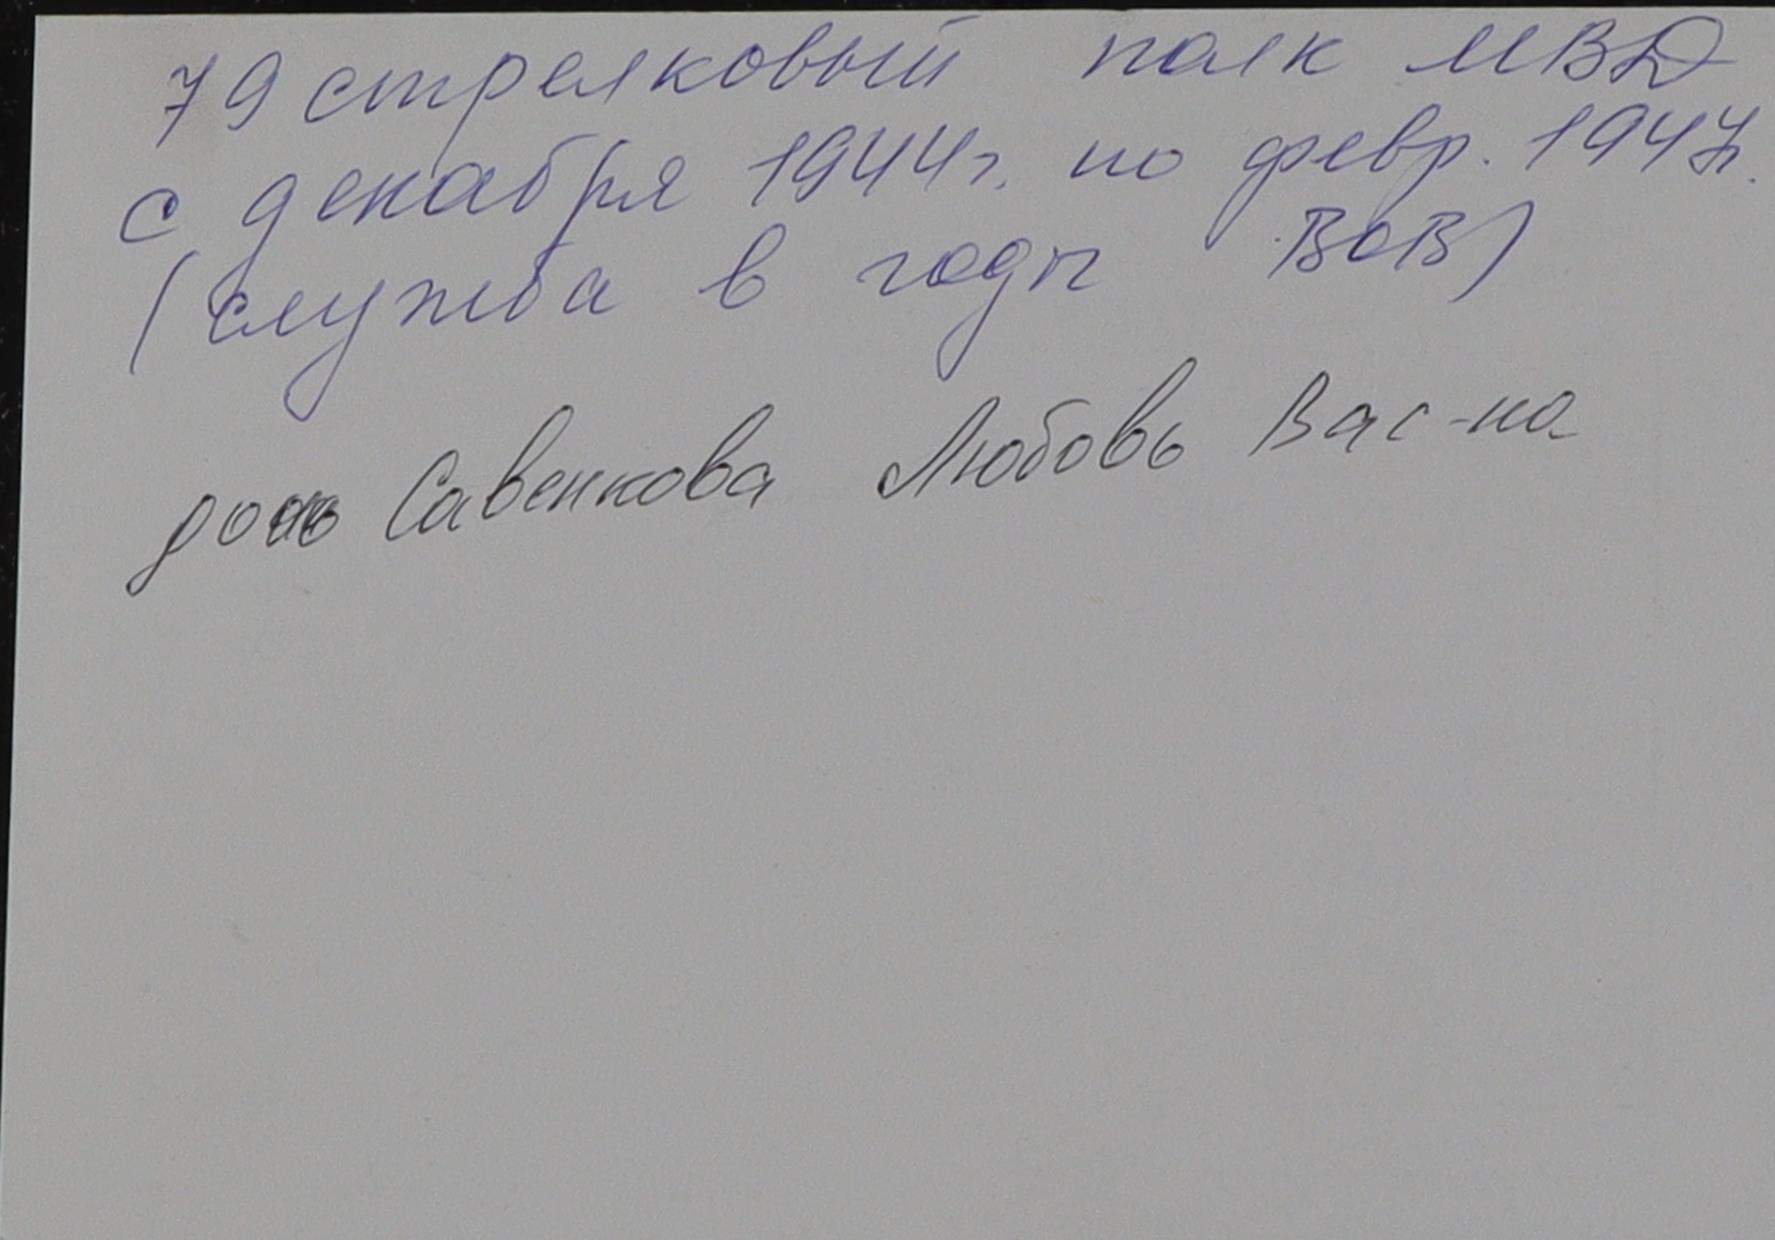 79 стрелковый полк МВД
с декабря 1944г. по февр. 1947.
(служба в годы ВОВ)
дочь Савенкова Любовь Вас-на